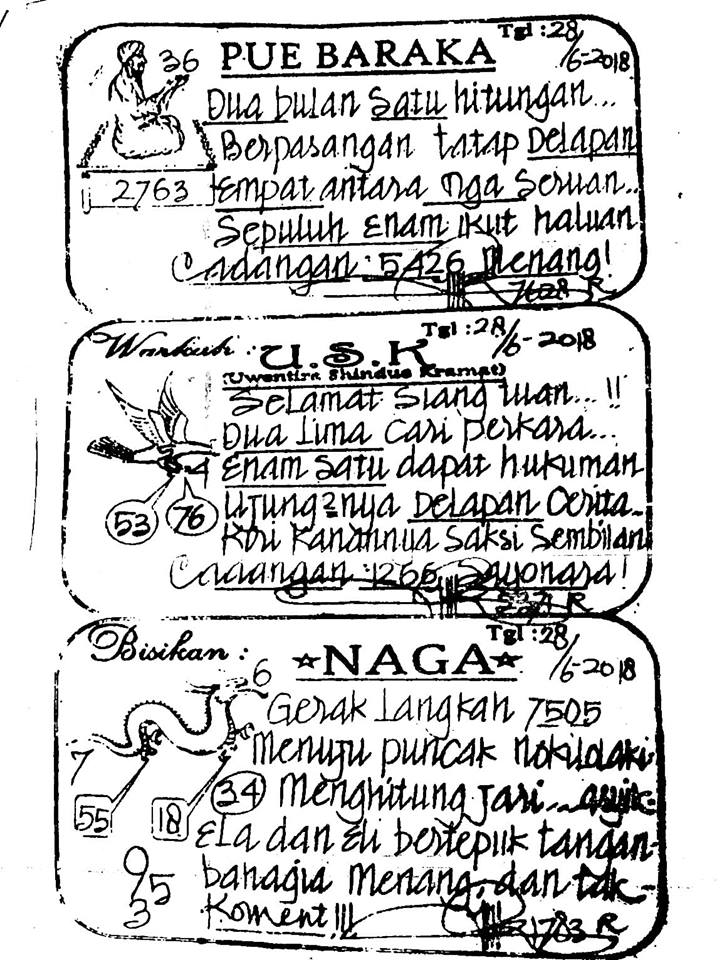 Tgl : 28/6-2018
36 PUE BARAKA
Dua bulan Satu hitungan...
Berpasangan tatap Delapan
2763 Empat antara nga Seruan..
Sepuluh Enam ikut haluan
Cadangan : 5426 Menang!
7628 R
Tgl : 28/6-2018
U.S.K
(Uwentira Shindue Kramat)
SeLamat Siang tuan... !!
Dua Lima Cari perkara...
4 Enam Satu dapat hukuman
53 76 Ujung2nya Delapan Cerita..
Kiri Kanannya Saksi Sembilan
Cadangan : 1266 Sayonara!
R
Tgl : 28/6-2018
Bisikan : NAGA
6 Gerak Langkah 7505
7 Menuju puncak nokilolaki
55 18 34 Menghitung Jari... asyik-
ELa dan Eli bertepuk tangan-
9 5 3 bahagia Menang, dan tak-
Koment!!!
31783 R